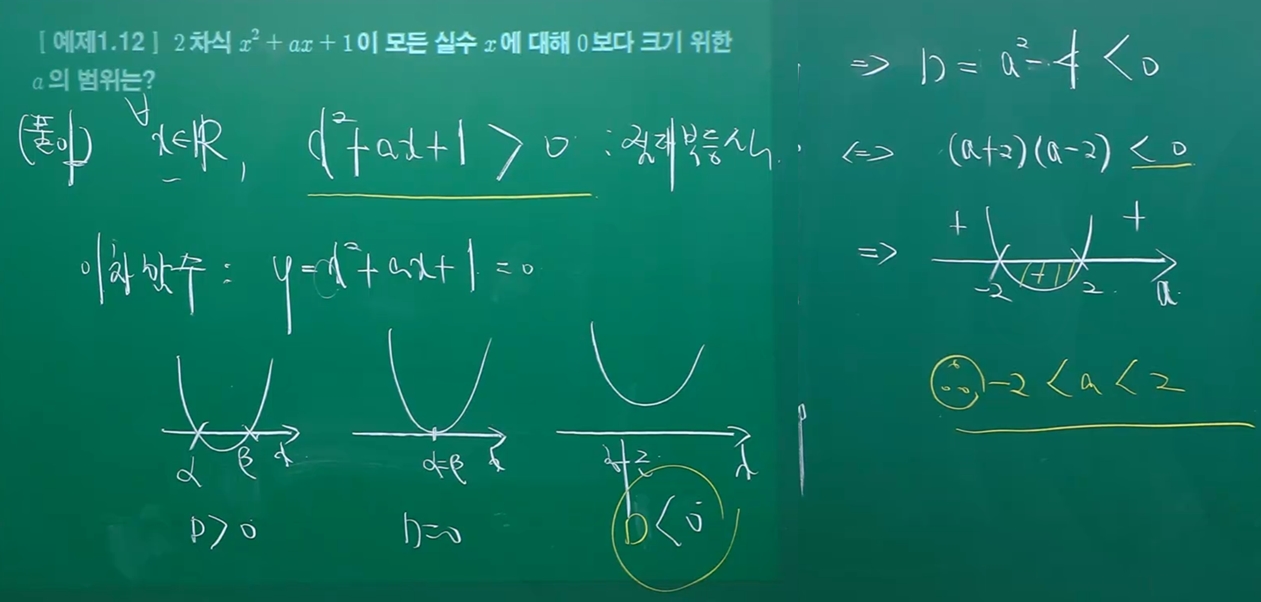 [ 예제1.12 ] 2차식 x² + ax + 1이 모든 실수 x에 대해 0보다 크기 위한
a의 범위는?
(풀이) ∀x∈ℝ, x²+ax+1 > 0 : 절대부등식.
이차함수 : y=x²+ax+1 = 0
α β x
α=β x
x
D>0
D=0
D<0
=> D = a²-4 < 0
<=> (a+2)(a-2) < 0
=>
+ +
-2 2 a
∴ -2 < a < 2